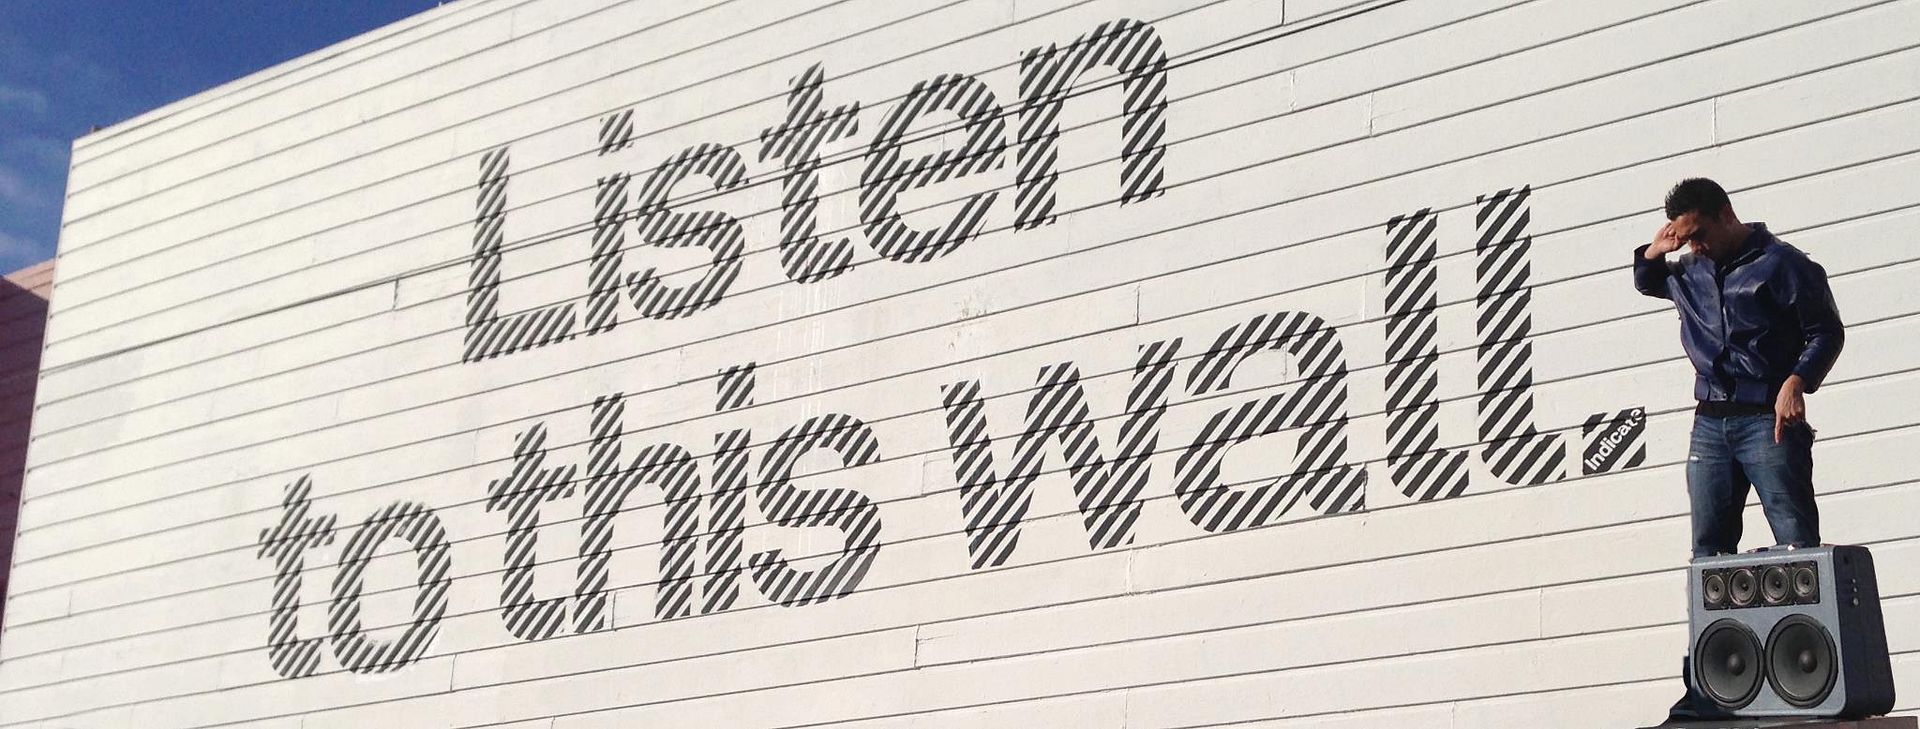 Listen
to this wall.
Indicate